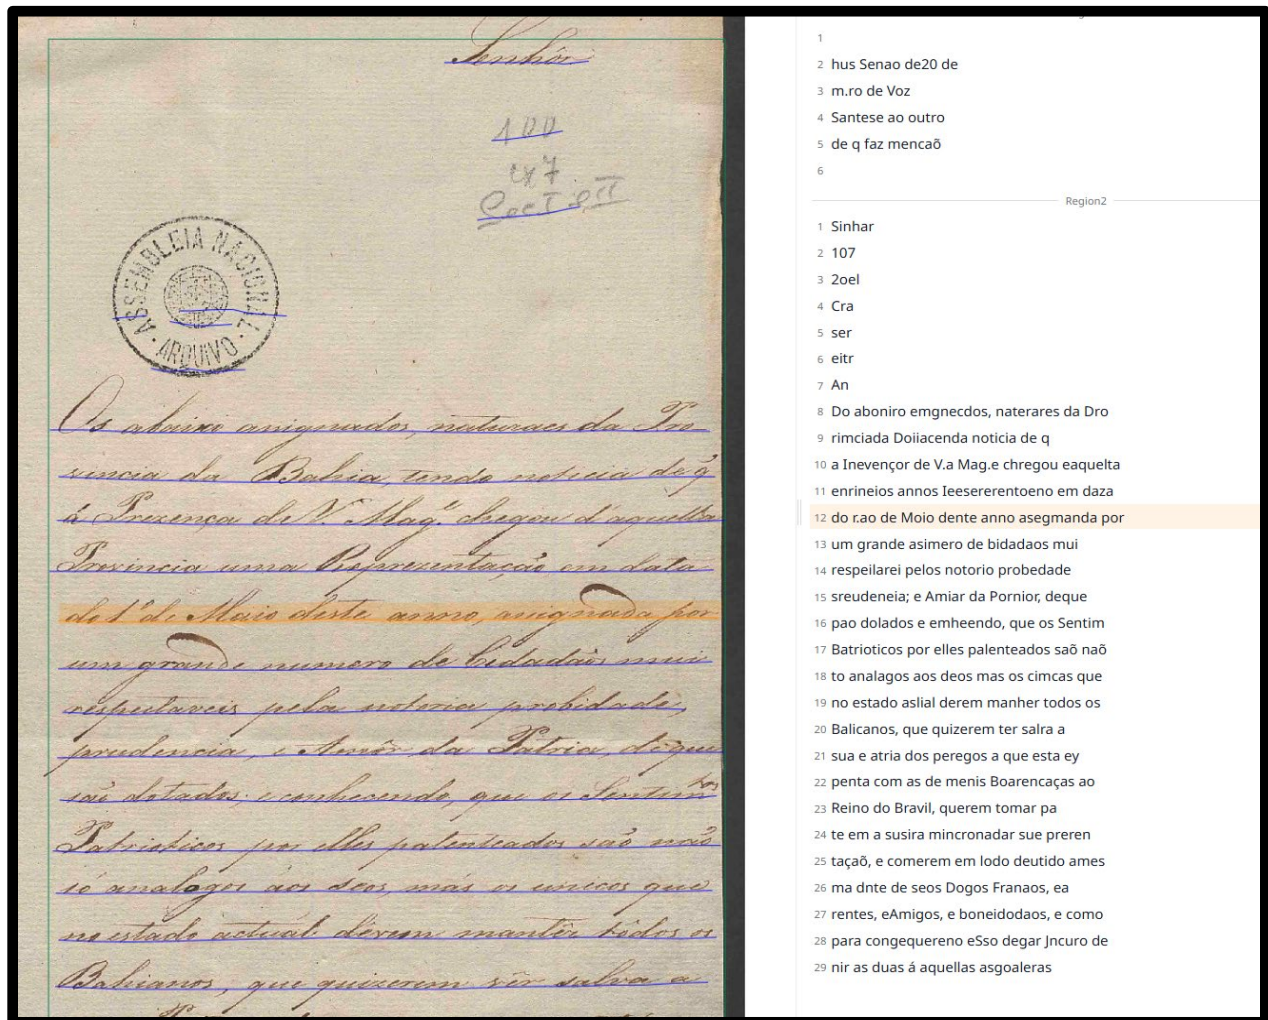 Senhôr
100
cx 7
Sec I e II
ASSEMBLEIA NACIONAL
· ARQUIVO ·
Os abaixo asignados, naturaes da Pro
vincia da Bahia, tendo noticia de q
á Prezença de V. Mag.e chegou d'aquella
Provincia uma Reprezentação em data
do 1º de Maio deste anno, asignada por
um grande numero de Cidadãos mui
respeitaveis pela notoria probidade,
prudencia, e Amôr da Patria, de que
são dotados; e conhecendo, que os Sentim.tos
Patrioticos por elles patenteados são não
só analogos aos seos, más os unicos que
no estado actual devem mantêr todos os
Bahianos, que quizerem vêr salva a
1
2 hus Senao de20 de
3 m.ro de Voz
4 Santese ao outro
5 de q faz mencaõ
6
Region2
1 Sinhar
2 107
3 2oel
4 Cra
5 ser
6 eitr
7 An
8 Do aboniro emgnecdos, naterares da Dro
9 rimciada Doiiacenda noticia de q
10 a Inevençor de V.a Mag.e chregou eaquelta
11 enrineios annos Ieesererentoeno em daza
12 do r.ao de Moio dente anno asegmanda por
13 um grande asimero de bidadaos mui
14 respeilarei pelos notorio probedade
15 sreudeneia; e Amiar da Pornior, deque
16 pao dolados e emheendo, que os Sentim
17 Batrioticos por elles palenteados saõ naõ
18 to analagos aos deos mas os cimcas que
19 no estado aslial derem manher todos os
20 Balicanos, que quizerem ter salra a
21 sua e atria dos peregos a que esta ey
22 penta com as de menis Boarencaças ao
23 Reino do Bravil, querem tomar pa
24 te em a susira mincronadar sue preren
25 taçaõ, e comerem em lodo deutido ames
26 ma dnte de seos Dogos Franaos, ea
27 rentes, eAmigos, e boneidodaos, e como
28 para congequereno eSso degar Jncuro de
29 nir as duas á aquellas asgoaleras